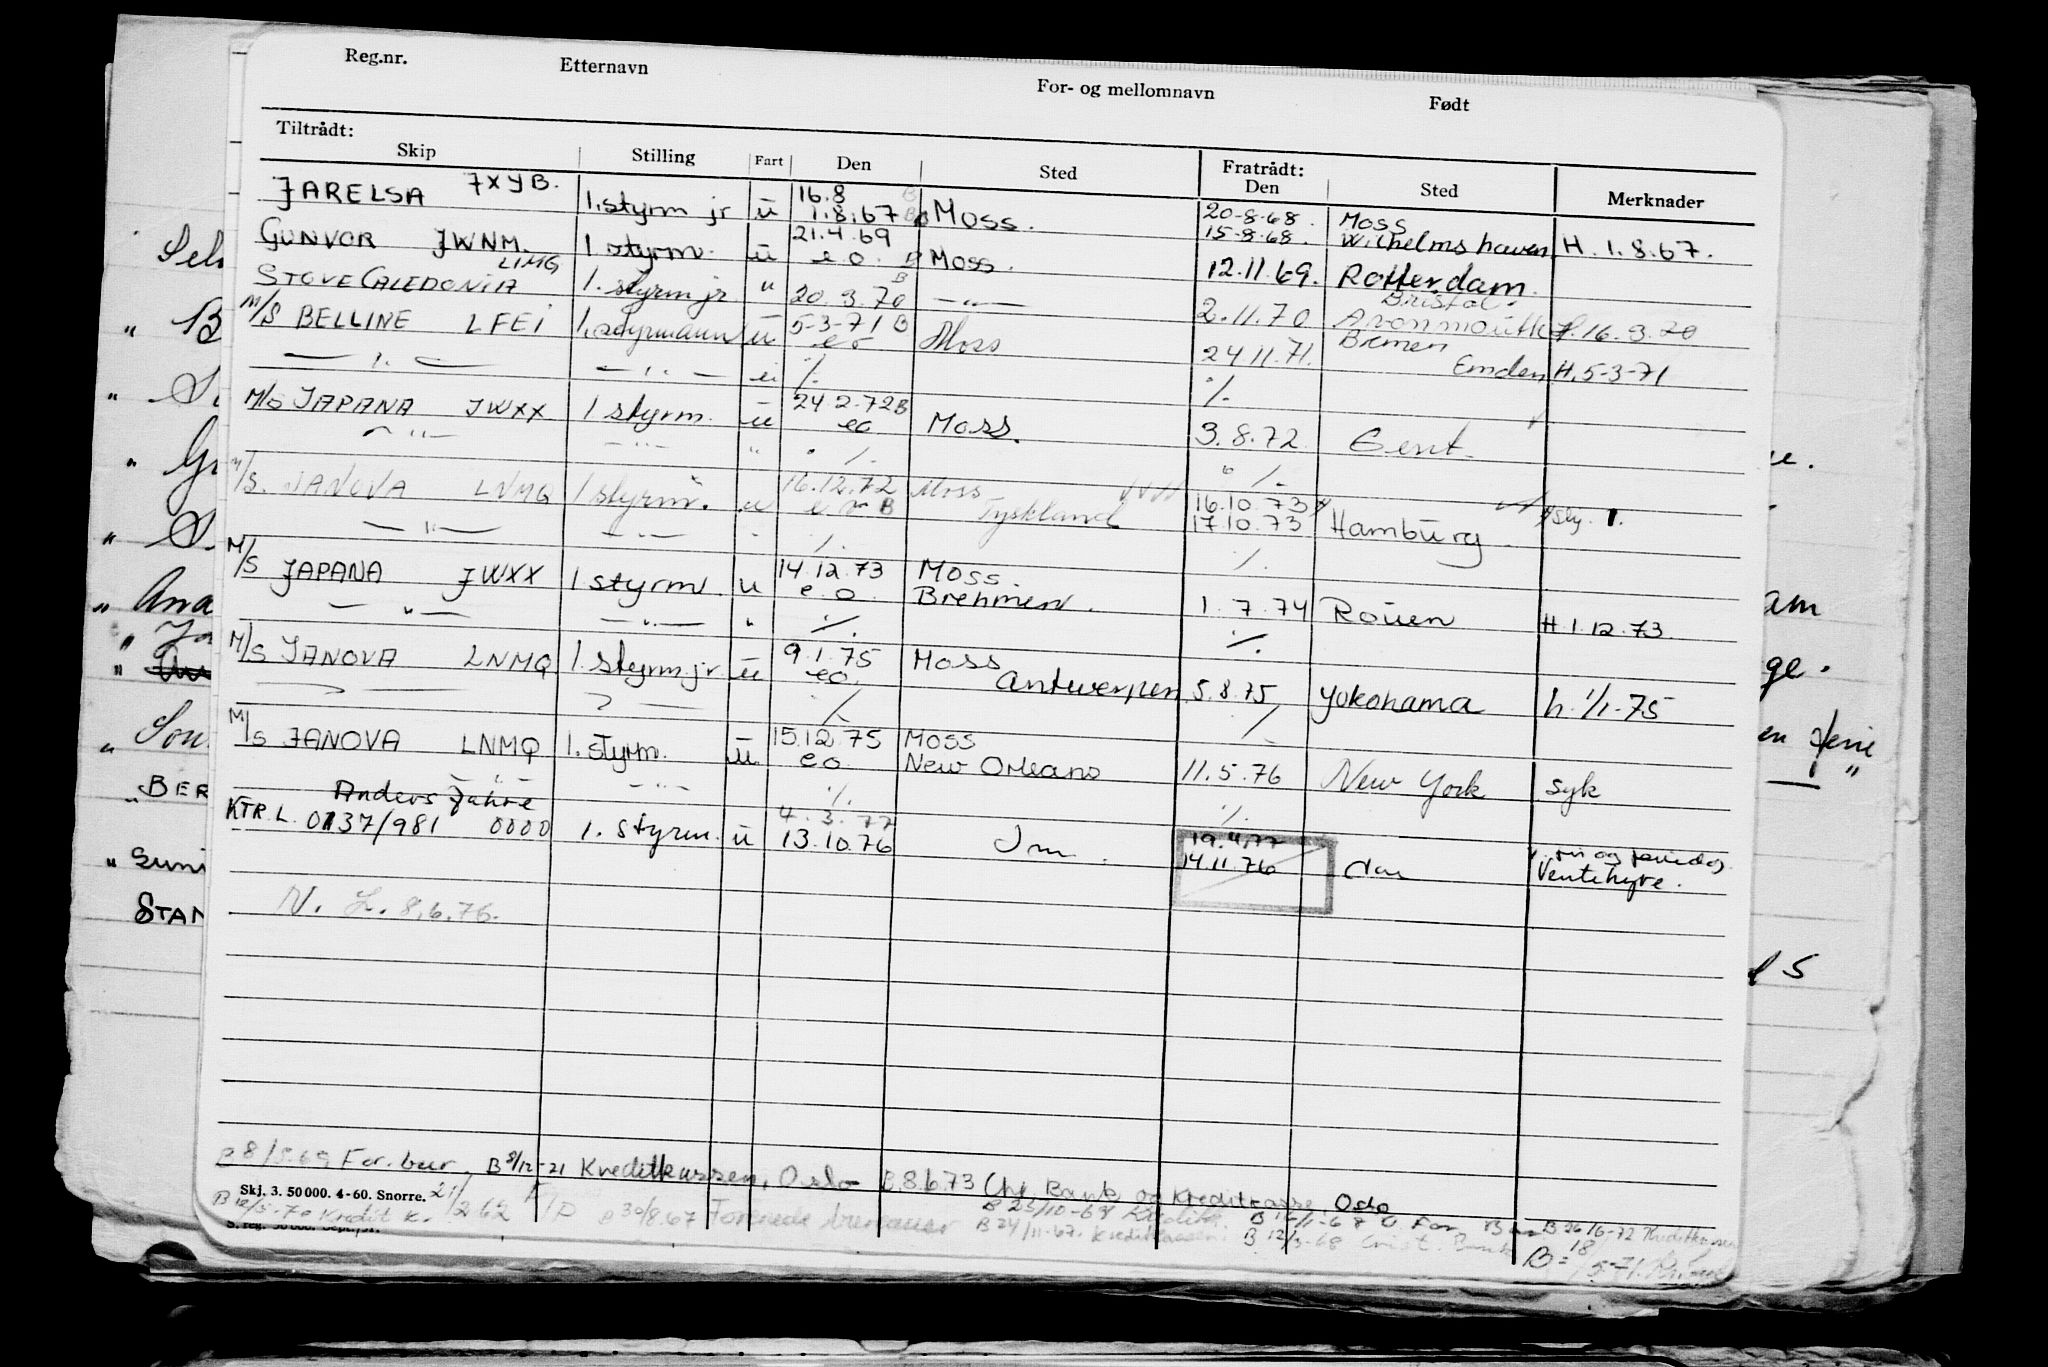 Reg.nr. Etternavn For- og mellomnavn Født
Tiltrådt: Fratrådt:
Skip Stilling Fart Den Sted Den Sted Merknader
JARELSA JXYB. 1.styrm jr u 16.8 1.8.67 Moss. 20-8-68. Moss
15-8-68. Wilhelmshaven H. 1.8.67.
GUNVOR JWNM. 1 styrm. u 21.4.69 e.o. B Moss. 12.11.69. Rotterdam.
STOVE CALEDONIA LIMG 1. styrm jr. " 20.3.70 B — " — 2.11.70 Bristol. Avonmouth H. 16.3.70
M/S BELLINE LFEI 1.styrmann u 5-3-71 B eo Moss 24.11.71. Bremen Emden H. 5-3-71
— " — — " — u ·/. ·/.
M/S JAPANA JWXX 1 styrm. u 24 2.72 B eo Moss. 3.8.72 Gent.
— " — — " — " ·/. ·/.
M/S. JANOVA LNMQ 1 styrm. u 16.12.72 B Moss Tyskland 16.10.73
17.10.73 Hamburg
— " — — " — " ·/. ·/.
M/S JAPANA JWXX 1 styrm. u 14.12.73 e.o. Moss. Brehmen. 1.7.74 Rouen H.1.12.73.
— " — — " — " ·/. ·/.
M/S JANOVA LNMQ 1. styrm jr. u 9.1.75 eo. Moss Antwerpen 5.8.75 Yokohama h. 1/1-75
·/. ·/.
M/S JANOVA LNMQ 1. styrm. u 15.12.75 eo Moss New Orleans 11.5.76 New York syk
— " — — " — ·/. ·/.
Anders Jahre 4.3.77 19.4.77
KTR.L. 0137/981 0000 1. styrm. u 13.10.76 14.11.76 Ventehyre.
N. L. 8.6.76.
B 8/5.69 For. bur. B 8/12-71 Kreditkassen, Oslo B.8.6.73 Chr. Bank og Kreditkasse Oslo
Skj. 3. 50 000. 4-60. Snorre. 21/2 62
B 12/5-70 Kredit k. B 30/8.67 Forenede bureauer B 24/11-67. Kreditkassen. B 25/10-68 B 12/3-68 Krist. Bank B 26/6-72 Kreditkassen
B = 18/5-71.
Seli
" B
" S
" Gr
" S.
" Ana
" Ja
"
" Sou
" BER
" Guni
STAN
e.
am
ge.
en ferie
"
S